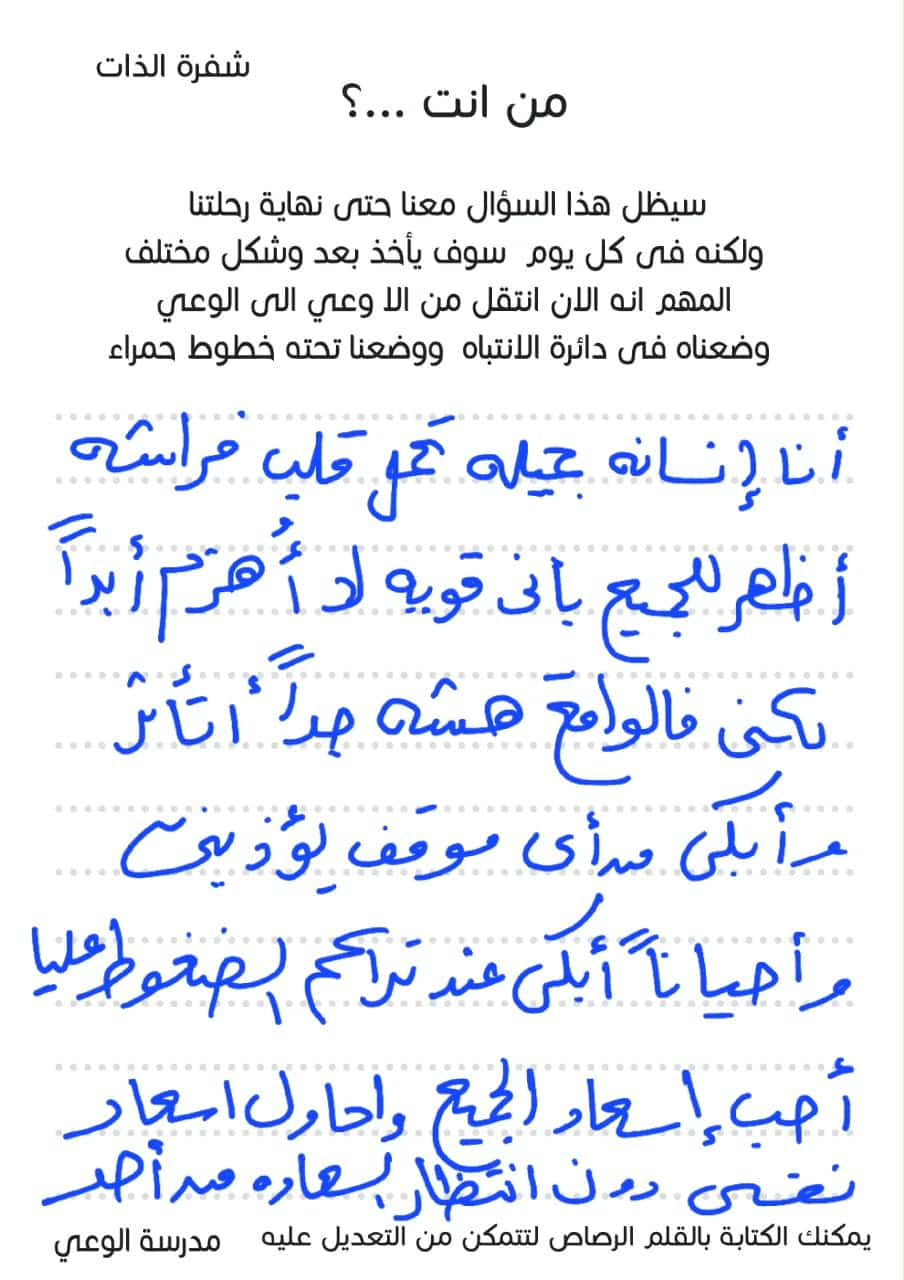 شفرة الذات
من انت ...؟
سيظل هذا السؤال معنا حتى نهاية رحلتنا
ولكنه فى كل يوم سوف يأخذ بعد وشكل مختلف
المهم انه الان انتقل من الا وعي الى الوعي
وضعناه فى دائرة الانتباه ووضعنا تحته خطوط حمراء
أنا إنسانه جميله تحمل قلب فراشه
أظهر للجميع بانى قويه لا أُهزم أبداً
لكنى فالواقع هشه جداً أتأثر
وأبكى من أى موقف يؤذينى
وأحياناً أبكى عند تراكم الضغوط عليا
أحب إسعاد الجميع واحاول اسعاد
نفسى دون انتظار السعاده من أحد
يمكنك الكتابة بالقلم الرصاص لتتمكن من التعديل عليه
مدرسة الوعي